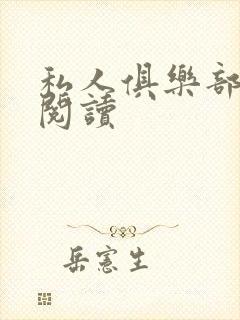 私人俱樂部
閱讀
岳憲生